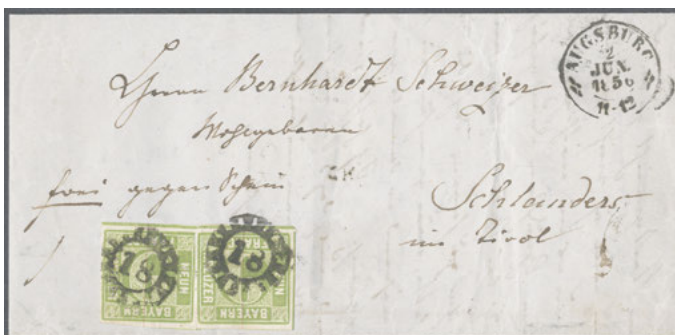 AUGSBURG
2
JUN.
1856
11-12
Herrn Bernhardt Schweizer
Wohlgeboren
frei gegen Schein
Schlanders
im Tirol
18
18
BAYERN
NEUN
BAYERN
KREUZER